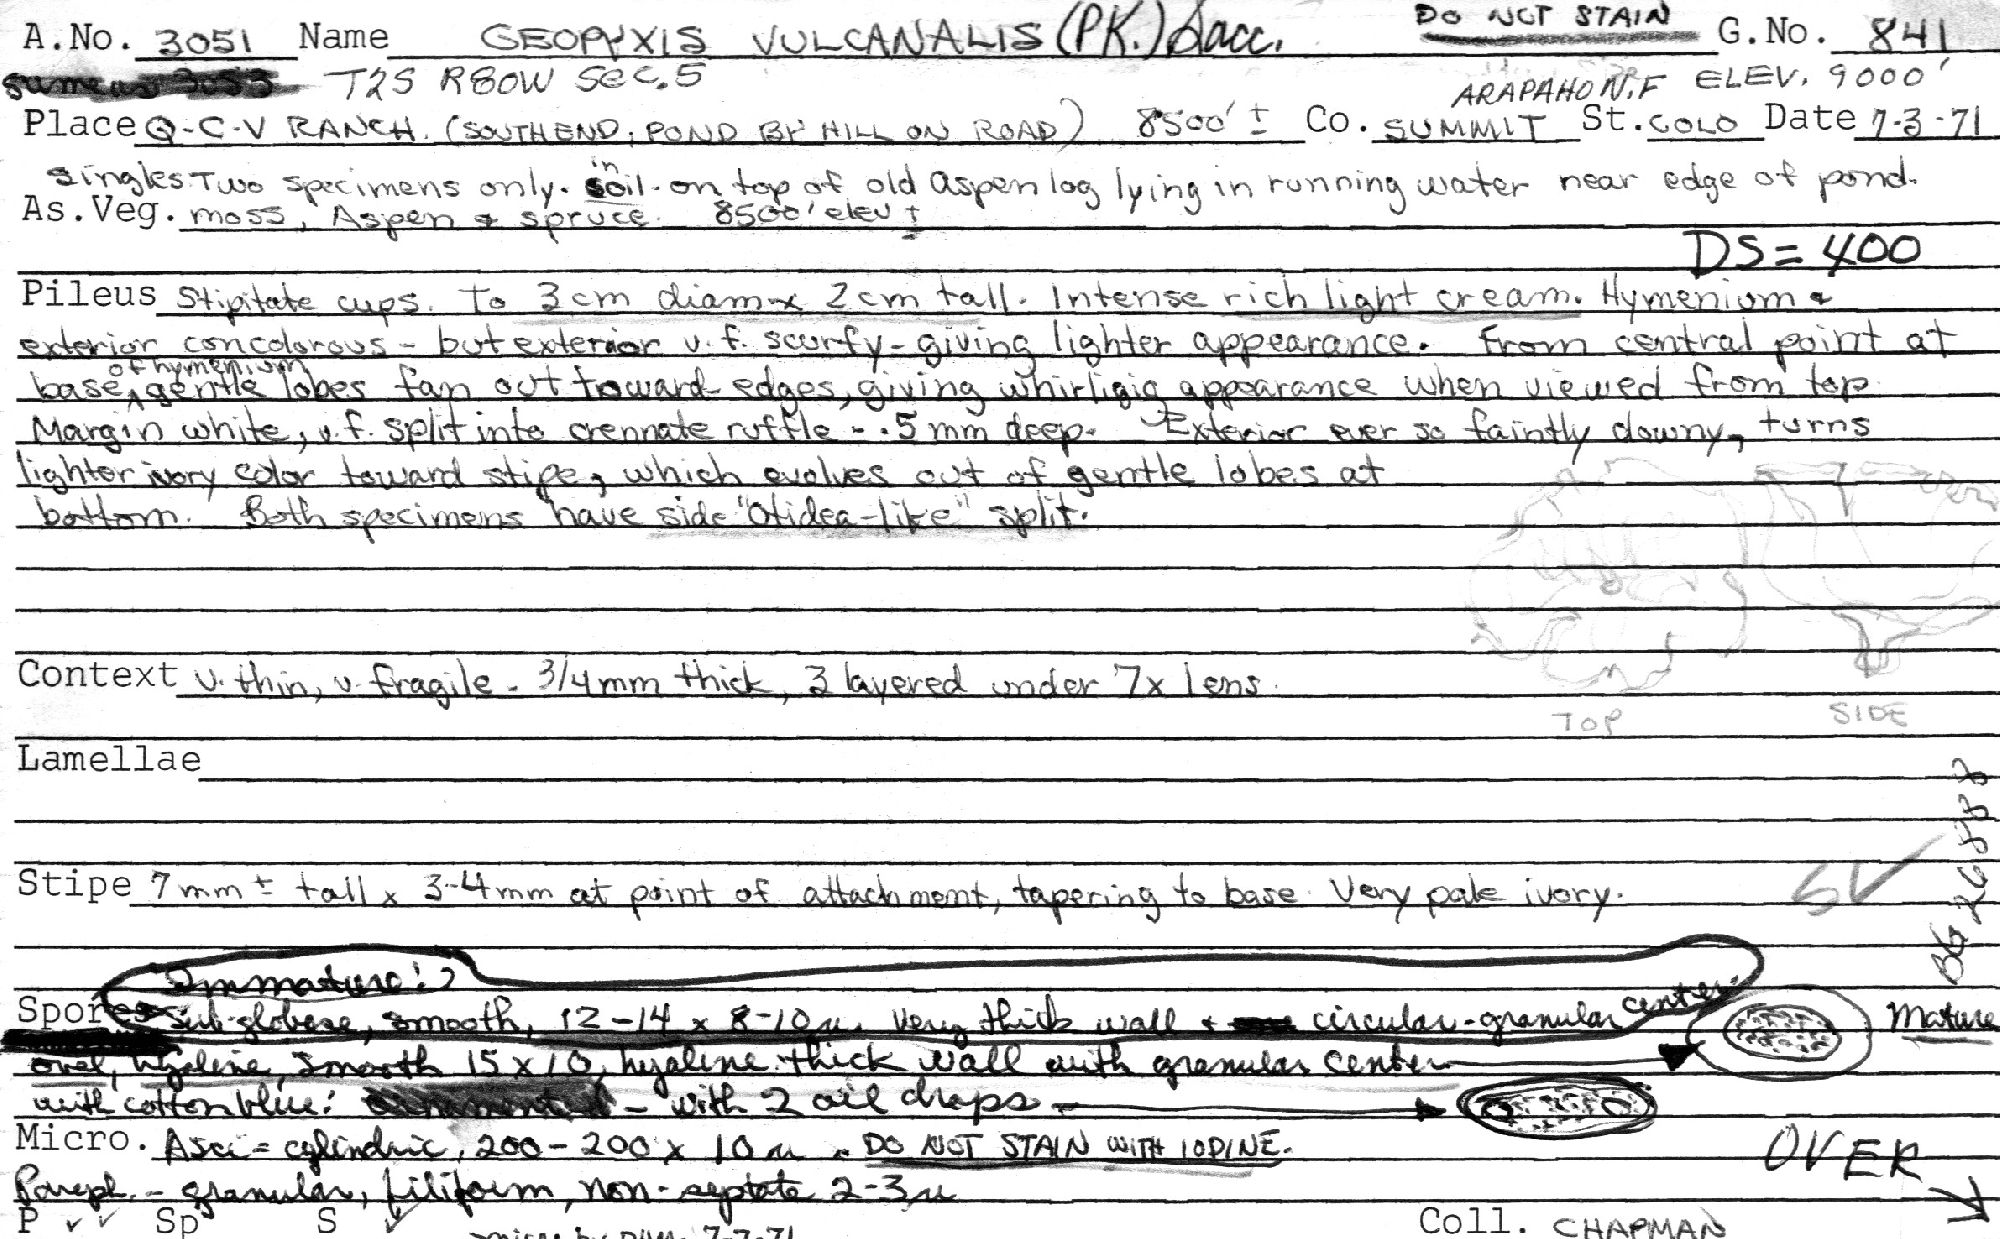 DO NOT STAIN
A.No. 3051 Name GEOPYXIS VULCANALIS (PK.) Sacc. G.No. 841
same as 3053 T2S R80W Sec. 5 ARAPAHO N.F ELEV. 9000'
Place Q-C-V RANCH. (SOUTH END, POND BY HILL ON ROAD) 8500' ± Co. SUMMIT St. COLO Date 7-3-71
singles. Two specimens only. in soil - on top of old Aspen log lying in running water near edge of pond.
As.Veg. moss, Aspen & spruce. 8500' elev ±
DS = 400
Pileus Stipitate cups. To 3 cm diam x 2 cm tall. Intense rich light cream. Hymenium &
exterior concolorous - but exterior v. f. scurfy - giving lighter appearance. From central point at
base of hymenium gentle lobes fan out toward edges, giving whirligig appearance when viewed from top.
Margin white, v. f. split into crennate ruffle - .5 mm deep. Exterior ever so faintly downy, turns
lighter ivory color toward stipe, which evolves out of gentle lobes at
bottom. Both specimens have side "Otidea-like" split.
Context v. thin, v. fragile - 3/4 mm thick, 3 layered under 7x lens.
TOP SIDE
Lamellae
Stipe 7 mm ± tall x 3-4 mm at point of attachment, tapering to base. Very pale ivory.
SV
BG 26888
Immature:
Spores Sub-globose, smooth, 12-14 x 8-10 u. Very thick wall + circular-granular center. Mature
oval, hyaline, smooth 15 x 10, hyaline thick wall with granular center
with cotton blue: - with 2 oil drops
Micro. Asci = cylindric, 200-200 x 10 u. DO NOT STAIN WITH IODINE.
OVER
Paraph. - granular, filiform, non-septate 2-3 u
P Sp S micro by 7-7-71 Coll. CHAPMAN